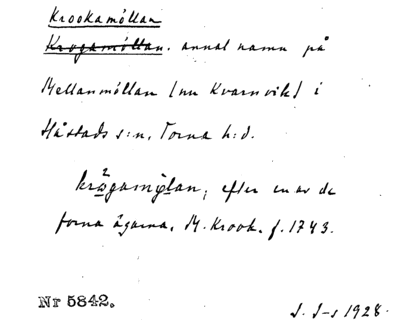 Krookamöllan
Krogamöllan. annat namn på
Mellanmöllan (nu Kvarnvik) i
Håstads s:n, Torna h:d.
krågamø̨lan, efter en av de
forna ägarna, M. Krook. f. 1743.
Nr 5842.
J. J-s 1928.